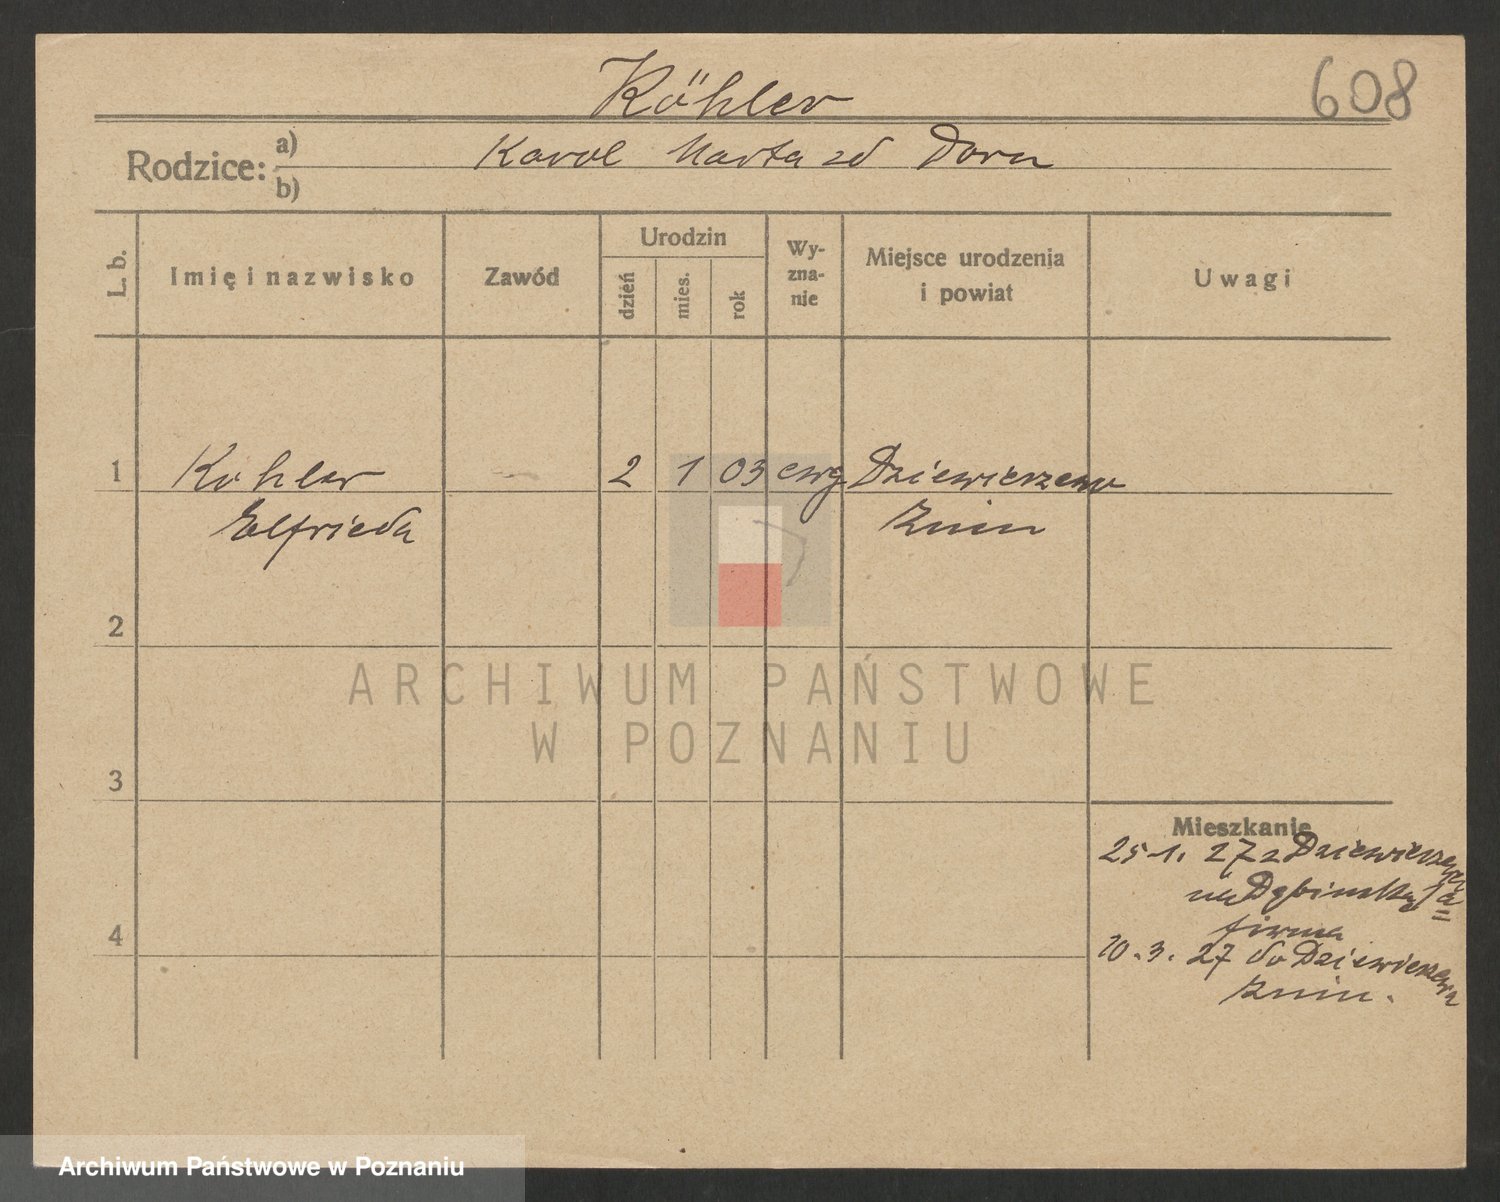 608
Köhler
Rodzice: a) b)
Karol Marta zd Dorn
L. b.
Imię i nazwisko
Zawód
Urodzin
dzień
mies.
rok
Wy-
zna-
nie
Miejsce urodzenia
i powiat
Uwagi
1
Kohler
Elfrieda
2 1 03 ewg
Dziewierzewo
Żnin
2
3
4
Mieszkanie
25.1. 27 z Dziewierzewa
na
firma
10. 3. 27 do Dziewierzewa
Żnin.
ARCHIWUM PAŃSTWOWE
W POZNANIU
Archiwum Państwowe w Poznaniu